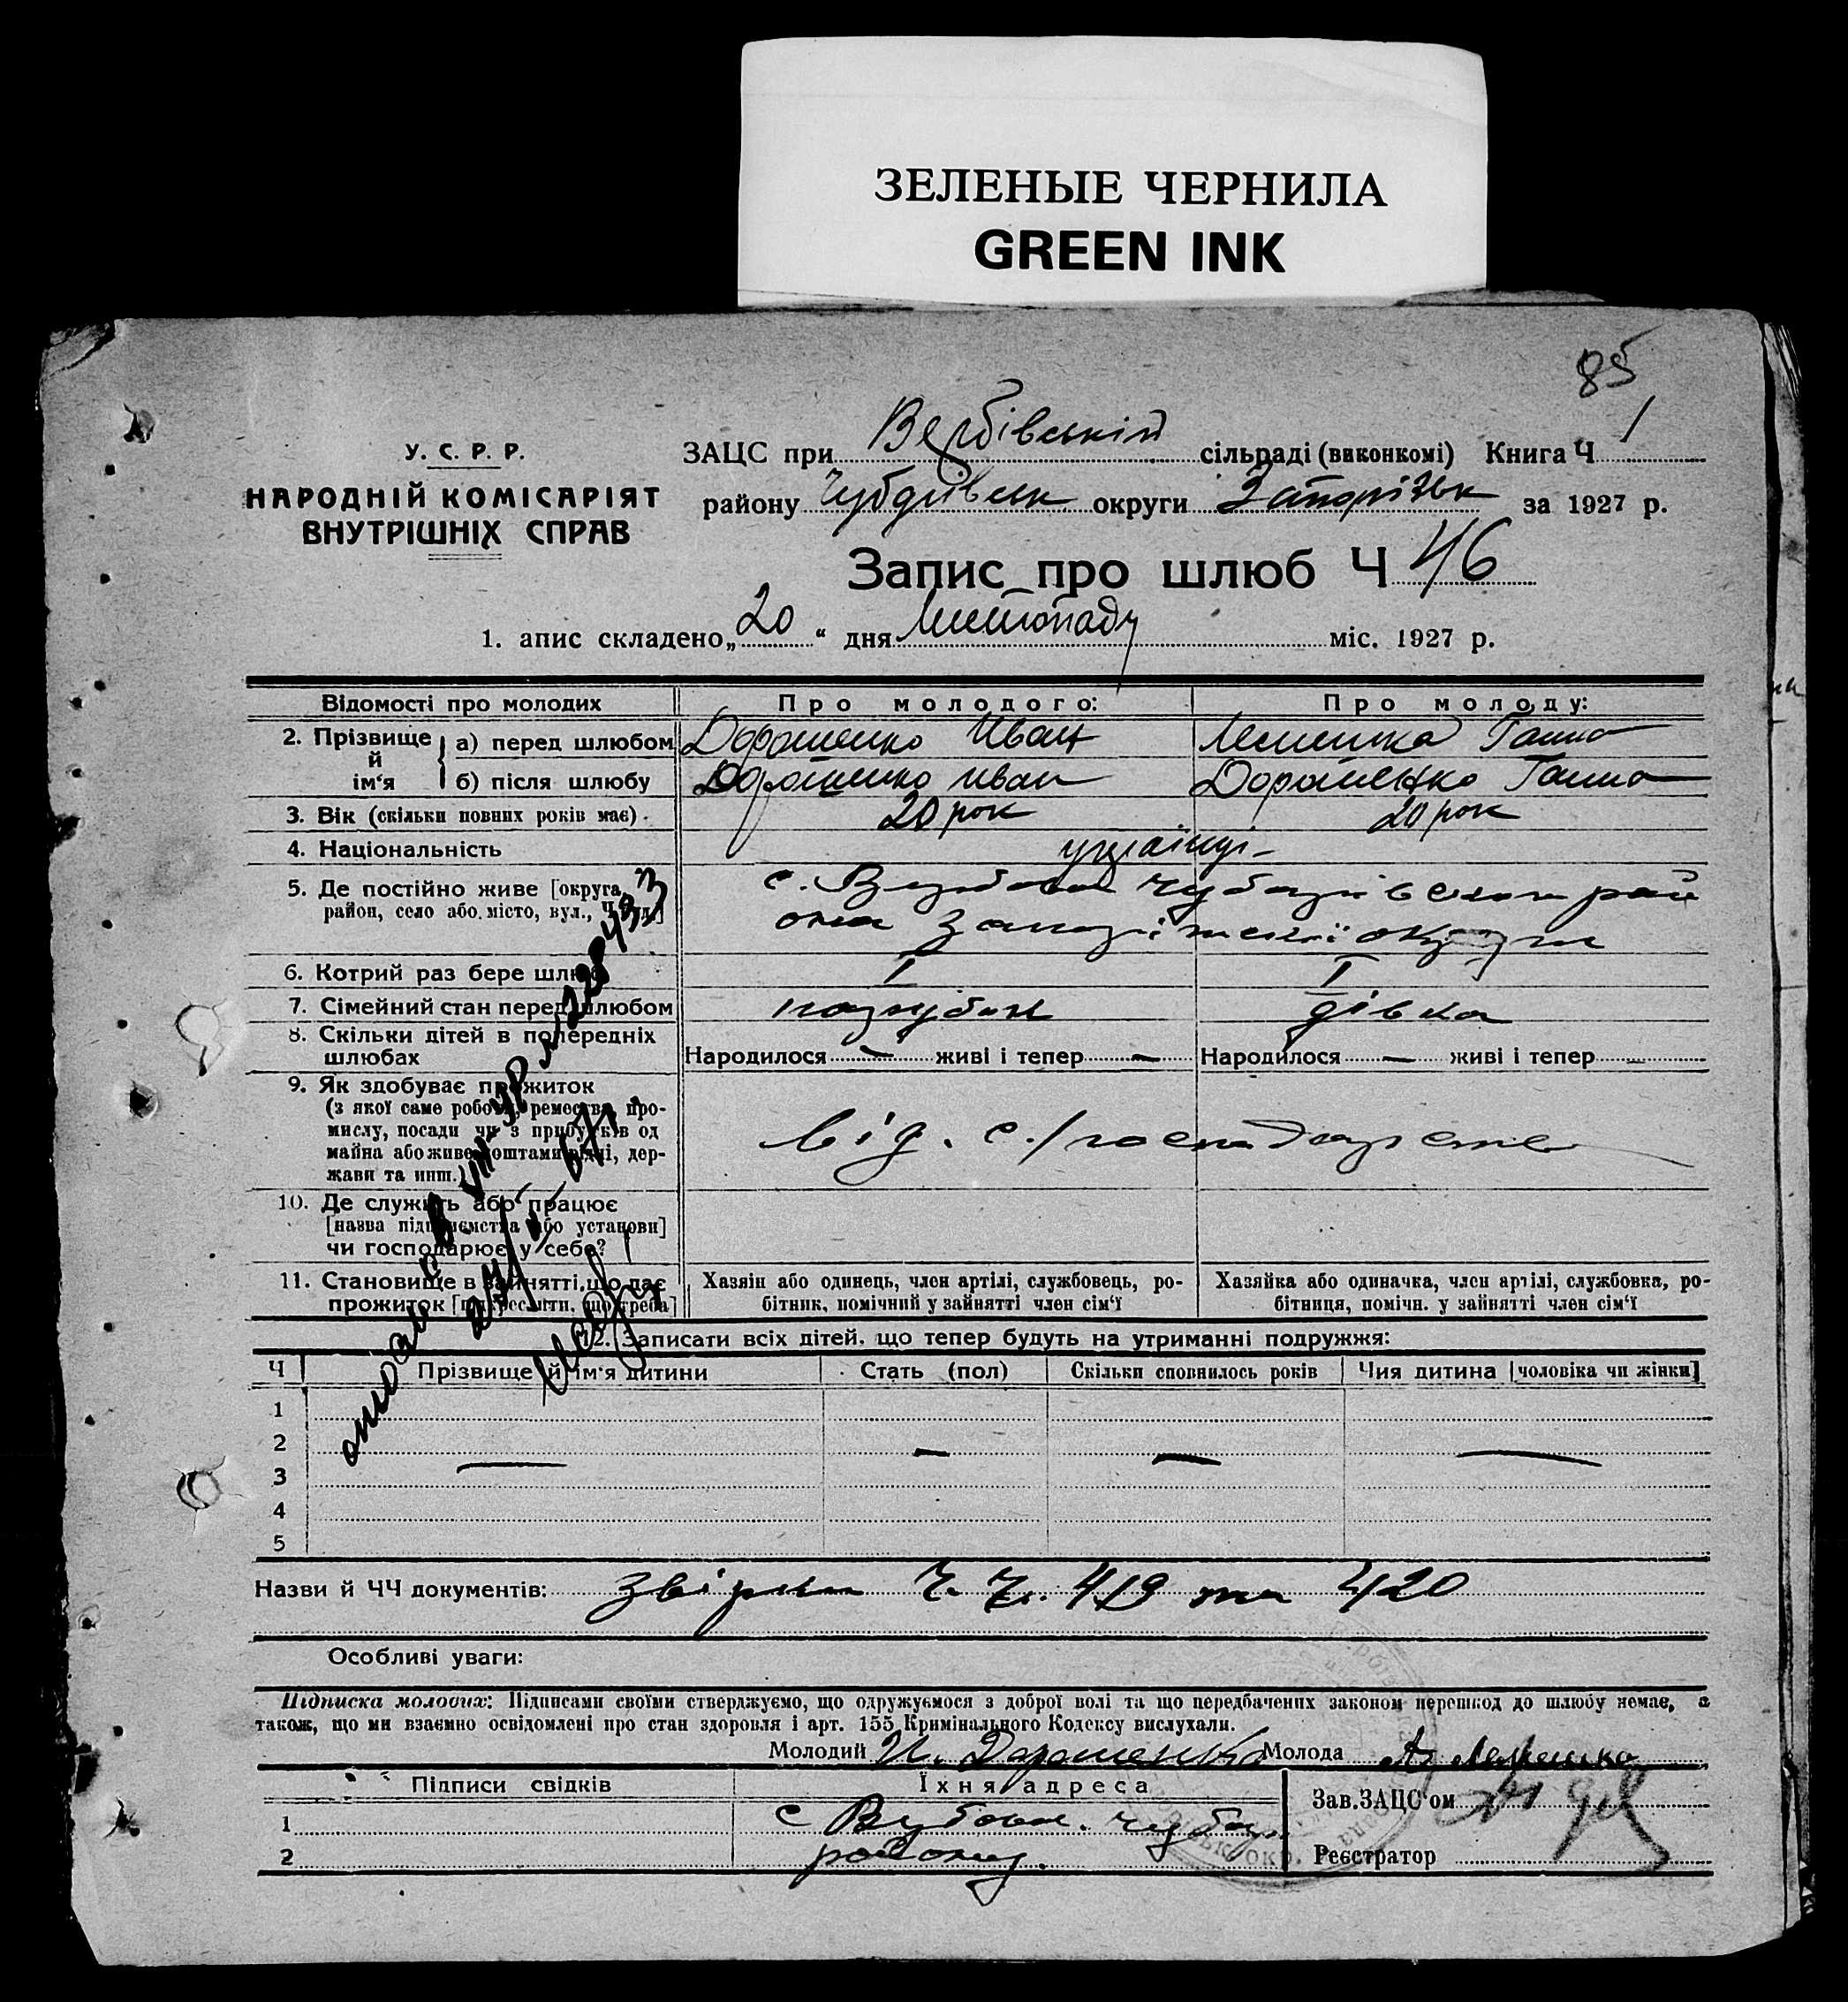 ЗЕЛЕНЫЕ ЧЕРНИЛА
GREEN INK
85
У. С. Р. Р.
НАРОДНІЙ КОМІСАРІЯТ
ВНУТРІШНІХ СПРАВ
ЗАЦС при Вербівській сільраді (виконкомі) Книга Ч 1
району округи Запоріжк за 1927 р.
Запис про шлюб Ч 46
1. апис складено „20“ дня Листопаду міс. 1927 р.
Відомості про молодих Про молодого: Про молоду:
2. Прізвище й ім‘я а) перед шлюбом Дорошенко Иван Ганна
б) після шлюбу Дорошенко иван Дорошенко Ганна
3. Вік (скільки повних років має). 20 рок 20 рок
4. Національність українці
5. Де постійно живе [округа,
район, село або місто, вул., Ч
с. Вербова
6. Котрий раз бере шлюб I I
7. Сімейний стан перед шлюбом парубок дівка
8. Скільки дітей в попередніх
шлюбах Народилося — живі і тепер — Народилося — живі і тепер —
9. Як здобуває прожиток
(з якої саме роботи, ремества, про-
мислу, посади чи з прибутків од
майна або живе коштами рідні, дер-
жави та инш.)
від. с/господарства
10. Де служить або працює
[назва підприємства або установи]
чи господарює у себе?
11. Становище в занятті, що дає
прожиток [підкреслити, що треба]
Хазяїн або одинець, член артілі, службовець, ро-
бітник, помічний у занятті член сім‘ї
Хазяйка або одиначка, член артілі, службовка, ро-
бітниця, помічн. у занятті член сім‘ї
12. Записати всіх дітей, що тепер будуть на утриманні подружжя:
Ч Прізвище й ім‘я дитини Стать (пол) Скільки сповнилось років Чия дитина [чоловіка чи жінки]
1
2 — — —
3 —
4
5
Назви й ЧЧ документів: Звірки Ч. Ч. 419 та 420
Особливі уваги:
Підписка молодих: Підписами своїми стверджуємо, що одружуємося з доброї волі та що передбачених законом перешкод до шлюбу немає, а
також, що ми взаємно освідомлені про стан здоровля і арт. 155 Кримінального Кодексу вислухали.
Молодий И. Дорошенко Молода
Підписи свідків Їхня адреса Зав. ЗАЦС‘ом
1 с Вербова.
2 району. Реєстратор